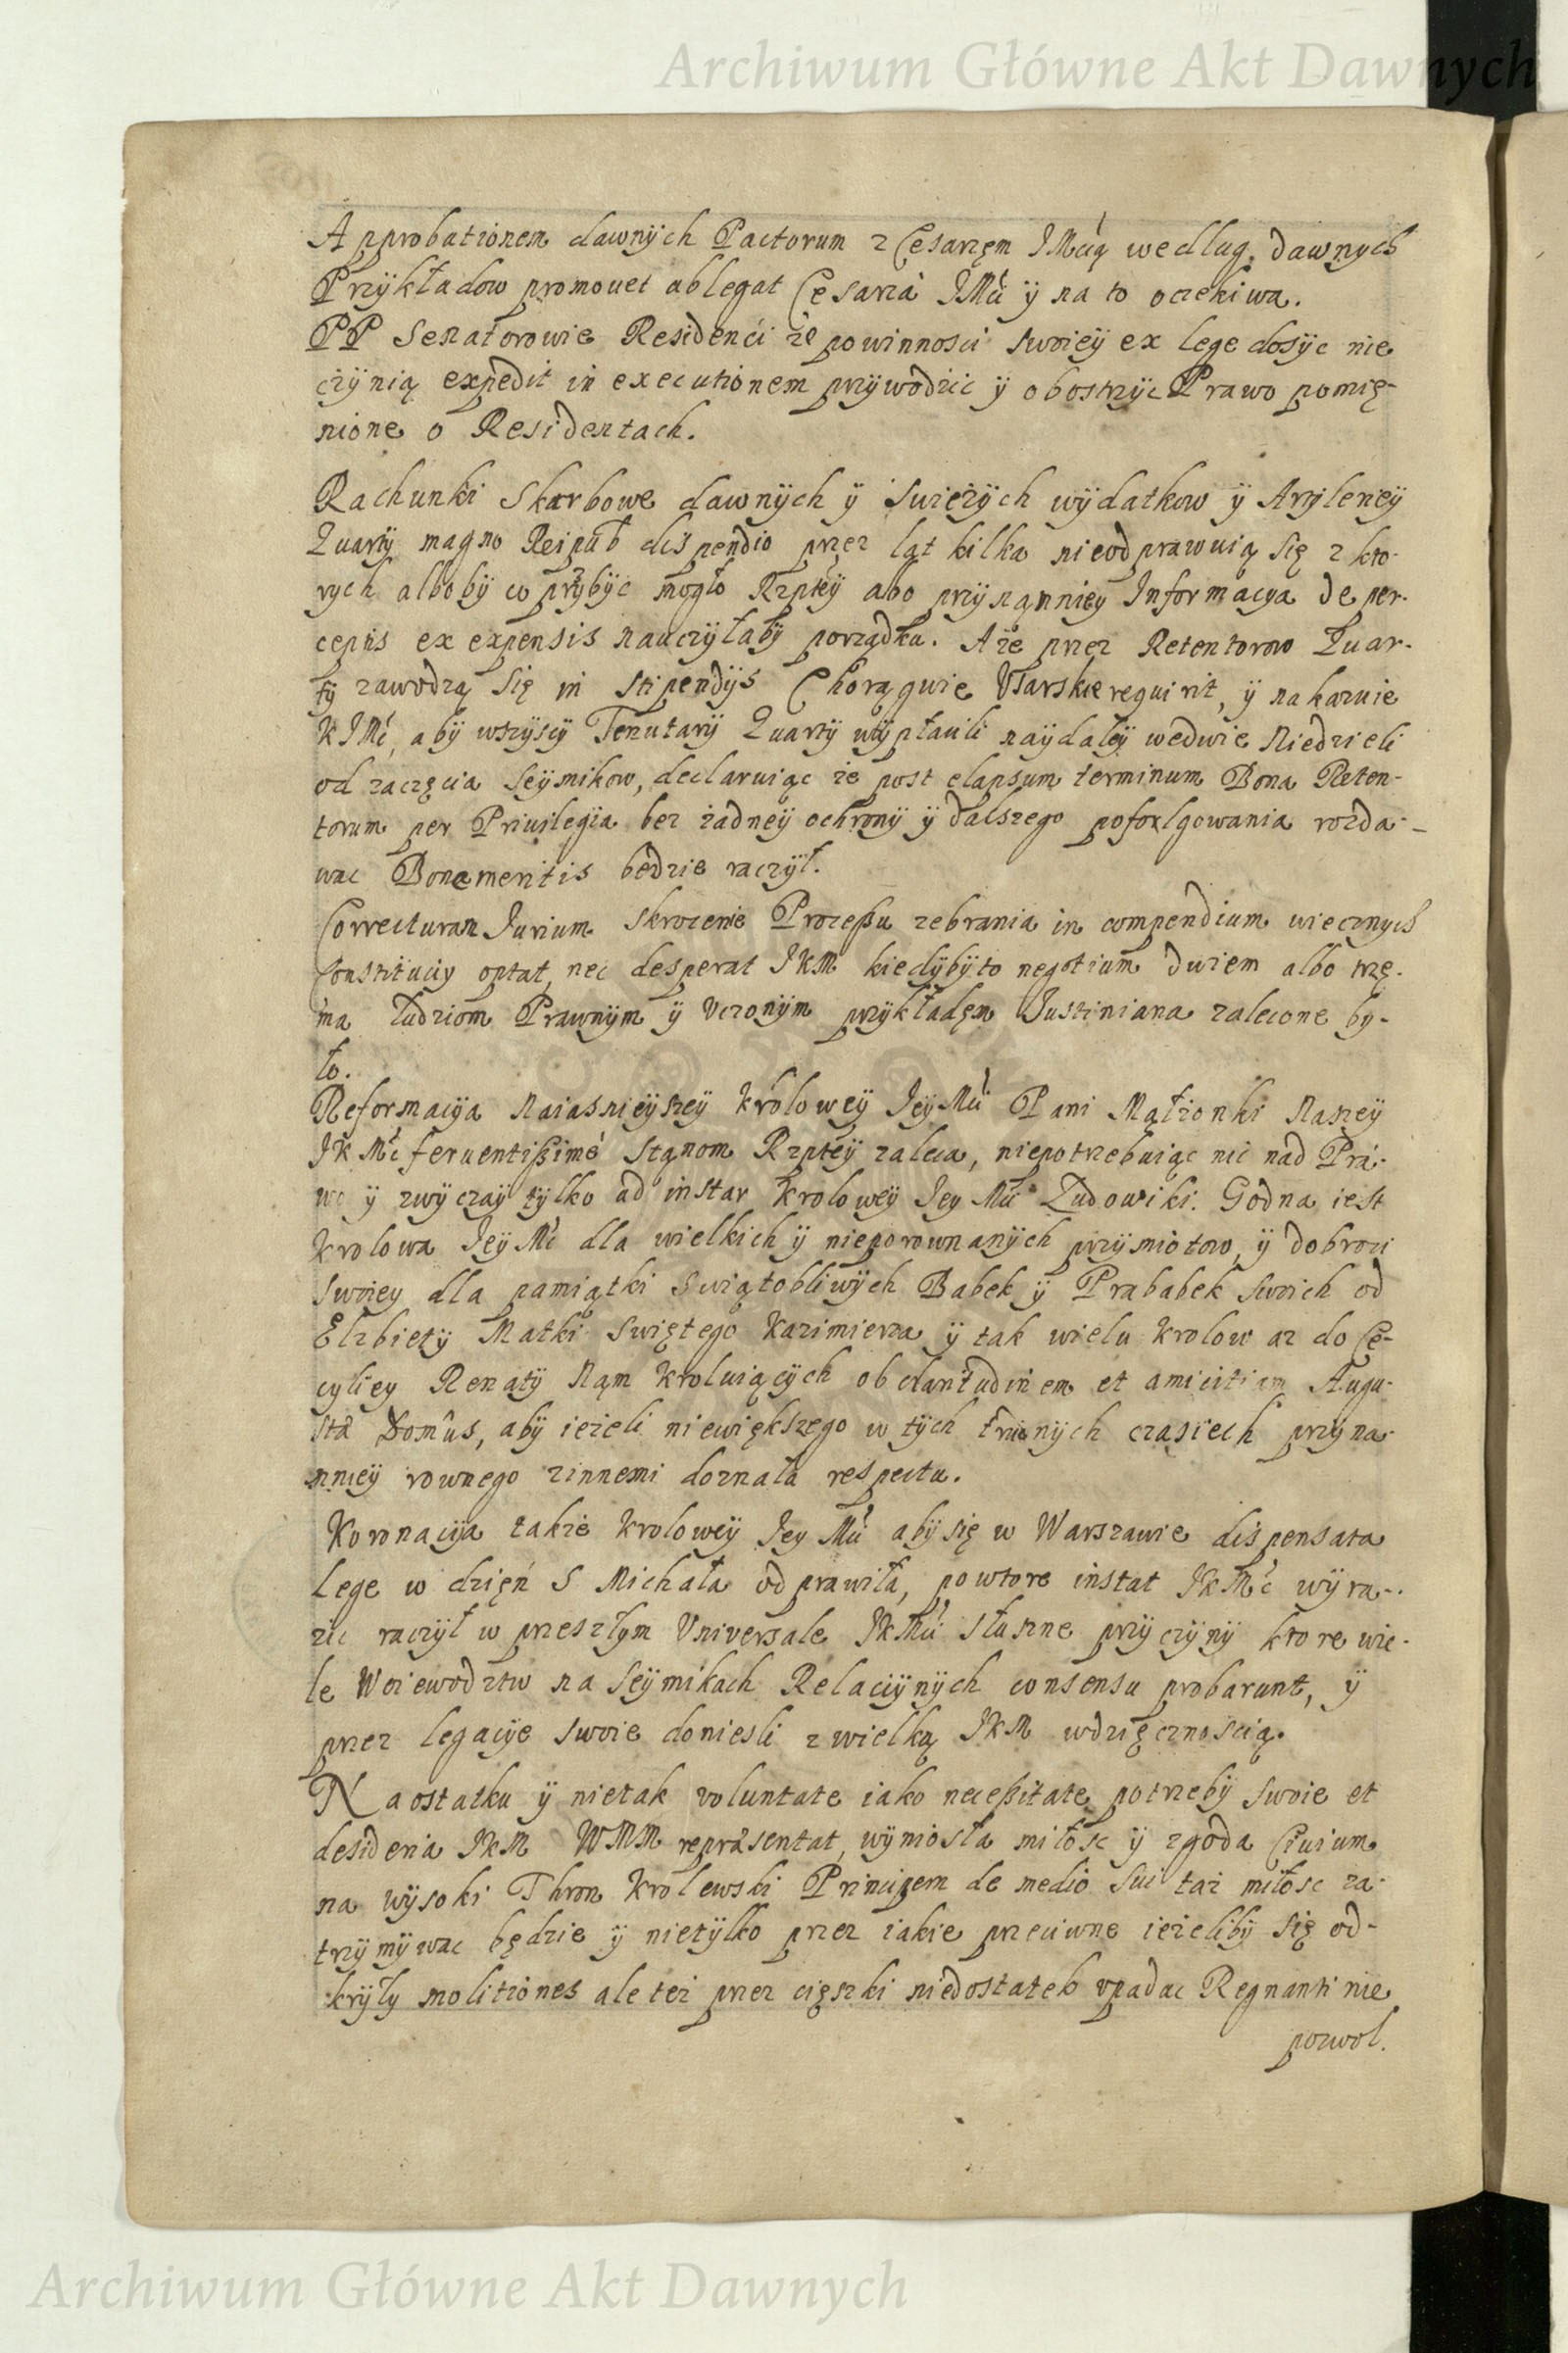 Archiwum Główne Akt Dawnych
Approbationem dawnÿch Pactorum z Cesarzęm JMcią wedlug dawnych
Przÿkładow promouet ablegat Cesarza JMci ÿ na to oczekiwa.
PP Senatorowie Residenci że powinnosci swoieÿ ex lege dosÿc nie
czÿnią expedit in executionem przÿwodzic ÿ obostrzÿc Prawo pomię-
nione o Residentach.
Rachunki Skarbowe dawnÿch ÿ swieżÿch wÿdatkow ÿ Arÿleneÿ
Quartÿ magno Reipub dispendio przez lat kilka nieodprawuią się z kto-
rych albobÿ co przÿbÿc mogło Rzpteÿ abo przÿnąmnieÿ Informacya de per-
ceptis ex expensis nauczÿłabÿ porządku. Aże przez Retentorow Quar-
tÿ zawodzą się in stipendÿs Chorągwie Vsarskie requirit, ÿ nakazuie
KJMc, abÿ wszÿscÿ Tenutarÿ Quartÿ wÿpłacili naÿdaleÿ wedwie Niedzieli
od zaczęcia Seÿmikow, declaruiąc że post elapsum terminum Bona Reten-
torum per Priuilegia bez żadneÿ ochronÿ ÿ dalszego pofolgowania rozda-
wac Bonemeritis będzie raczÿł.
Correcturam Jurium skrocenie Processu zebrania in compendium wiecznych
Constituciy optat, nec desperat JKM kiedÿbÿto negotium dwiem albo trzę-
ma Ludziom Prawnÿm ÿ Vczonÿm przÿkładęm Justiniana zalecone by-
ło.
Reformacÿa Naiasnieÿszeÿ Krolowÿ JeÿMci Pani Małżonki Naszeÿ
JKMc feruentissimé Stąnom Rzpteÿ zaleca, niepotrzebuiąc nic nad Pra-
wo ÿ zwÿczaÿ tÿlko ad instar Krolowÿ Jey Mci Ludowiki. Godna iest
Krolowa JeÿMc dla wielkich ÿ nieporownanÿch przÿmiotow, ÿ dobroci
swoiey dla pamiątki swiątobliwÿch Babek ÿ Prababek swoich od
Elzbietÿ Matki swiętego Kazimierza ÿ tak wielu Krolow az do Ce-
cyliey Renatÿ Nąm Kroluiącÿch ob claritudinem et amicitiam Augu-
sta Domûs, abÿ ieżeli niewiększego w tÿch czasiech przyna-
mnieÿ rownego zinnemi doznała respectu.
Koronacÿa także Krolowÿ Jey Mci abÿ się w Warszawie dispensata
Lege w dzięń S Michała odprawiła, powtore instat JKMc wÿra-
zic raczÿł w przeszłym Vniversale JKMci słuszne przÿczÿnÿ ktore wie-
le Woiewodztw na Seÿmikach Relacÿinÿch consensu probarunt, ÿ
przez legacÿe swoie doniesli z wielką JKM wdzięcznoscią.
Naostatku ÿ nietak voluntate iako necessitate potrzebÿ swoie et
desideria JKM WMM repræsentat, wÿniosła miłosc ÿ zgoda Ciuium
na wÿsoki Thron Krolewski Principem de medio sui taż miłosc za-
trzÿmÿwac będzie ÿ nietÿlko przez iakie przeciwne ieżelibÿ się od-
krÿłÿ molitiones ale też przez cięszki niedostatek vpadac Regnanti nie
pozwol.
Archiwum Główne Akt Dawnych